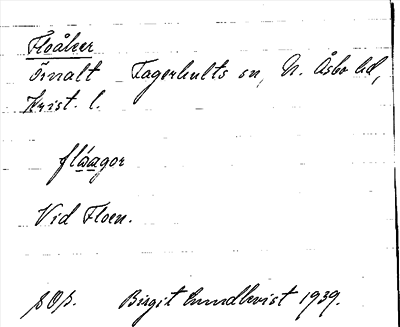 Floåker
Önalt Fagerhults sn, N. Åsbo hd,
Krist. l.
flåagor
Vid Floen.
Birgit Lundkvist 1939.